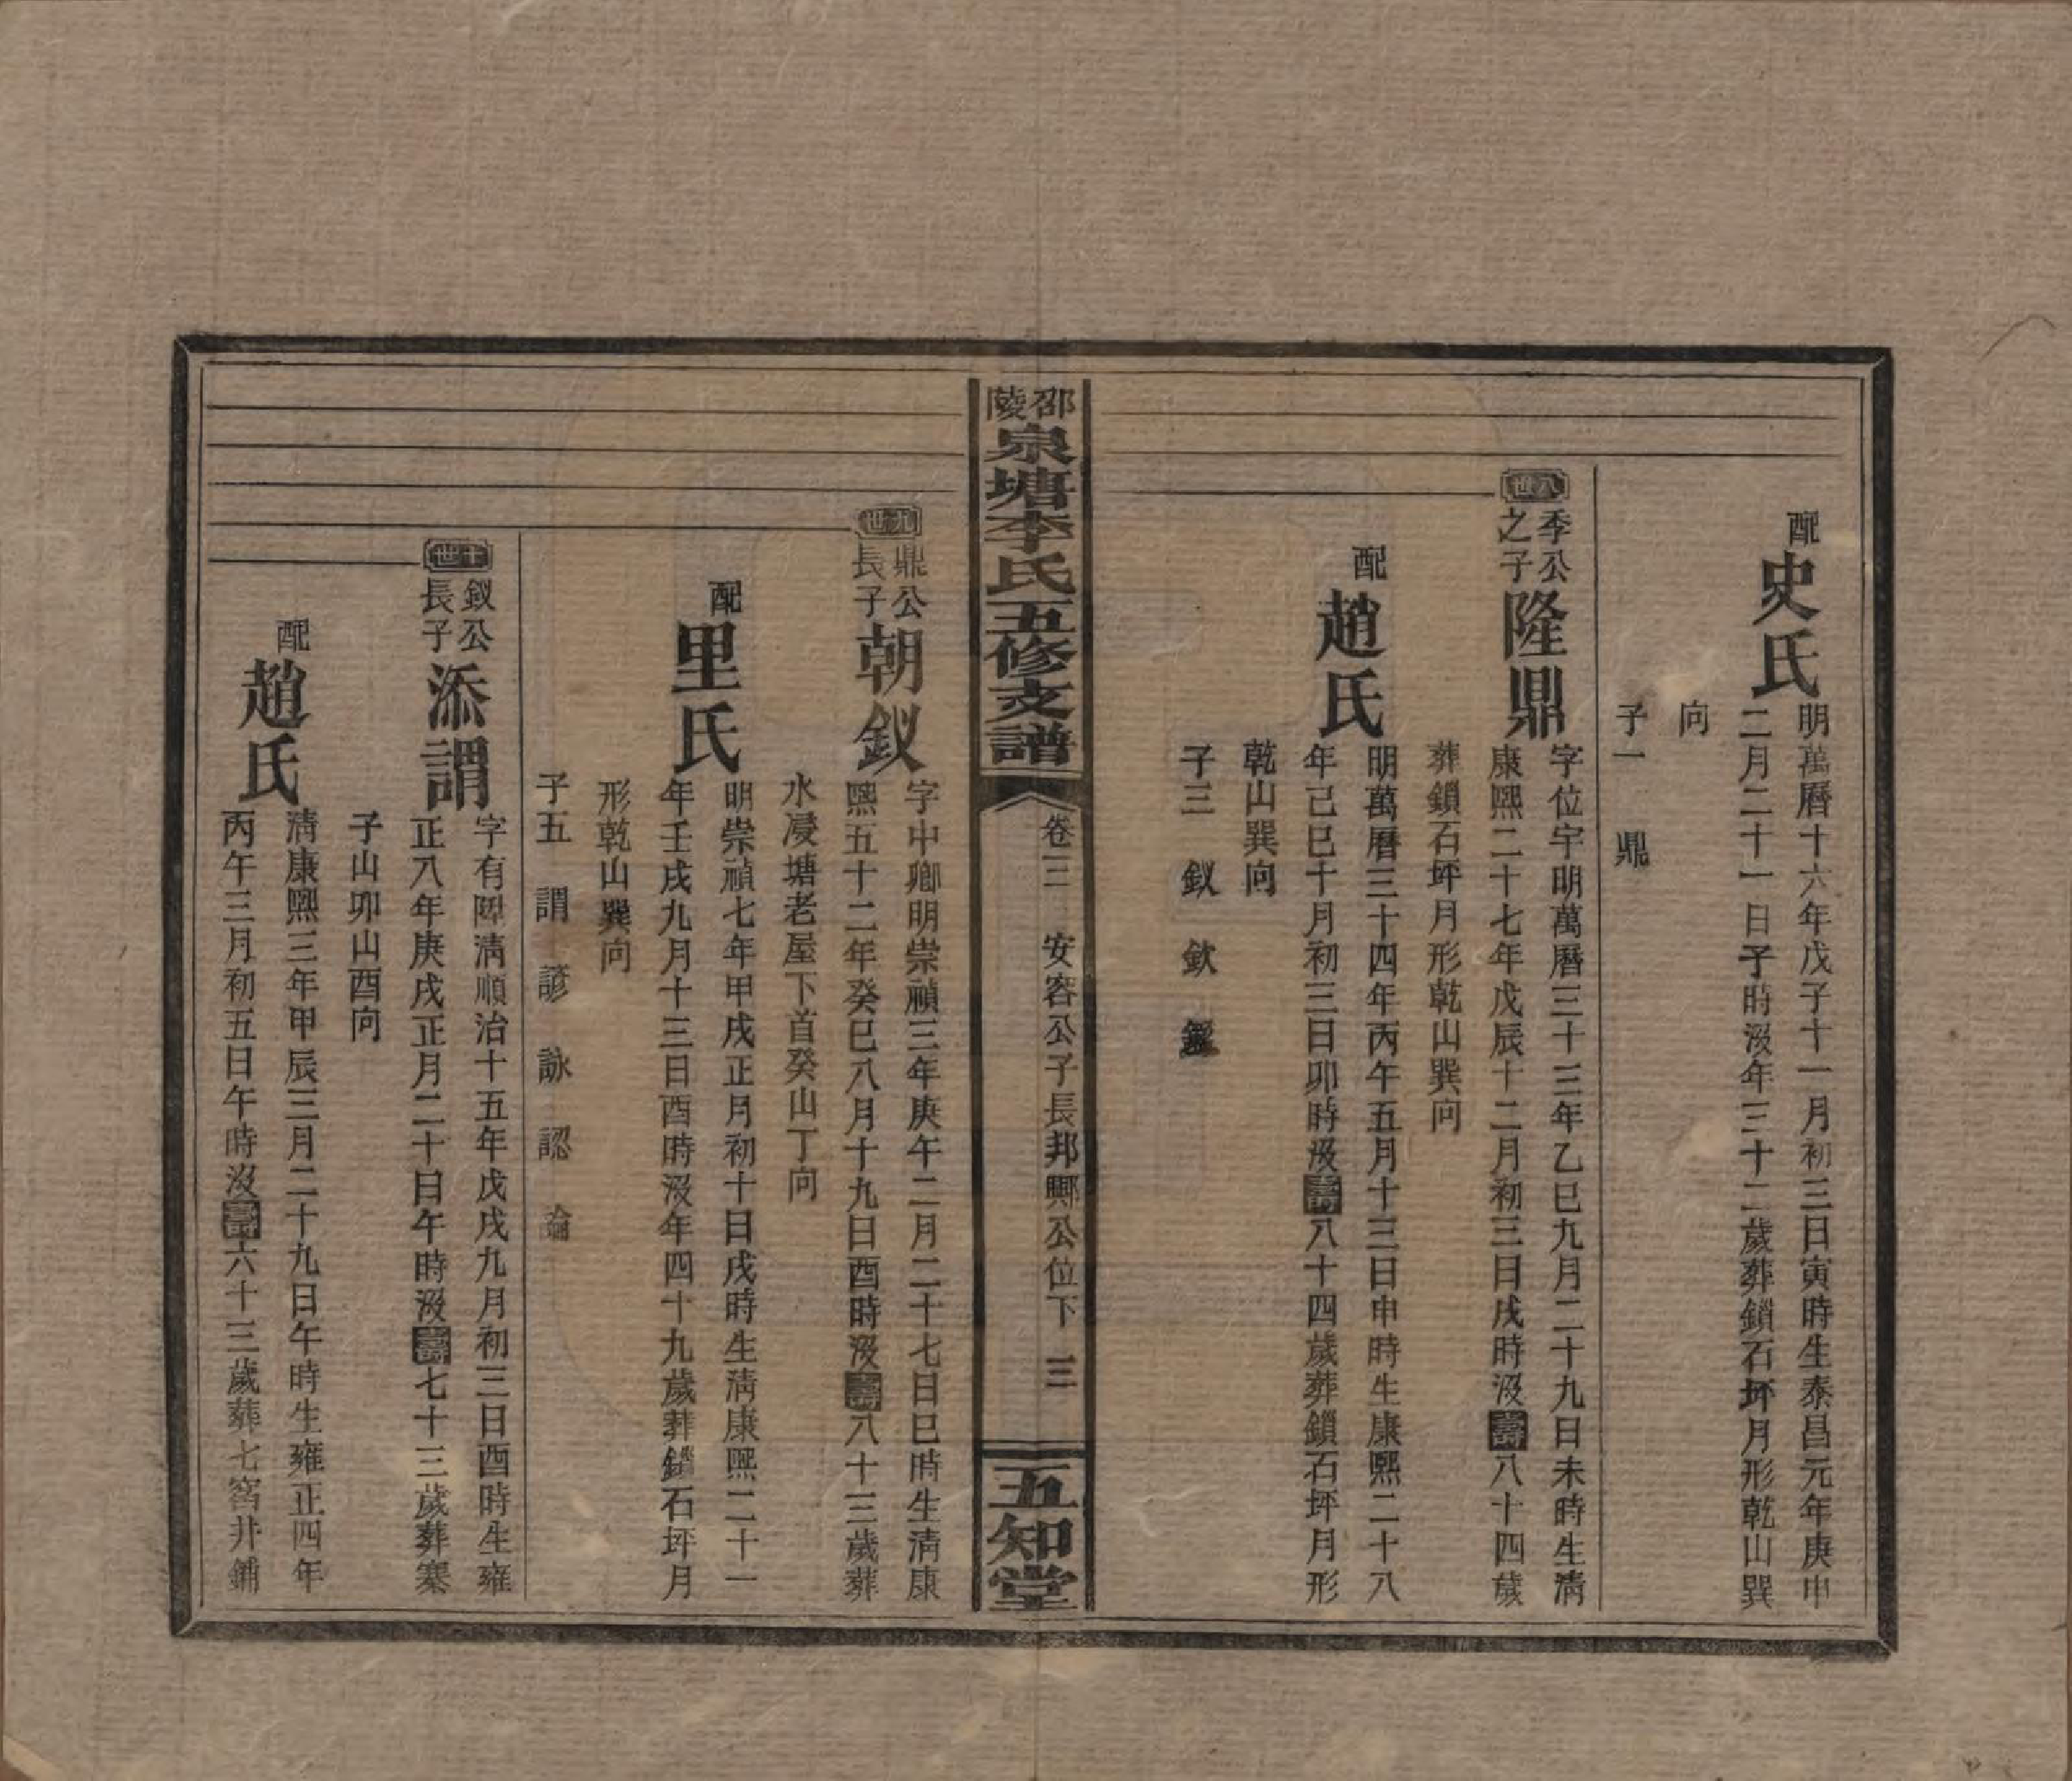 配史氏
明萬曆十六年戊子十一月初三日寅時生泰昌元年庚申
二月二十一日子時沒年三十二歲葬鎖石坪月形乾山巽
向
子一　鼎
八世
季公
之子
隆鼎
字位宇明萬曆三十三年乙巳九月二十九日未時生清
康熙二十七年戊辰十二月初三日戌時沒壽八十四歲
葬鎖石坪月形乾山巽向
配趙氏
明萬曆三十四年丙午五月十三日申時生康熙二十八
年己巳十月初三日卯時沒壽八十四歲葬鎖石坪月形
乾山巽向
子三　釵　欽
邵陵泉塘李氏五修支譜
卷三　安容公子長邦興公位下　三
五知堂
九世
鼎公
長子
朝釵
字中鄉明崇禎三年庚午二月二十七日巳時生清康
熙五十二年癸巳八月十九日酉時沒壽八十三歲葬
水浸塘老屋下首癸山丁向
配里氏
明崇禎七年甲戌正月初十日戌時生清康熙二十一
年壬戌九月十三日酉時沒年四十九歲葬鎖石坪月
形乾山巽向
子五　謂　諺　詠　認　論
十世
釵公
長子
添謂
字有陞清順治十五年戊戌九月初三日酉時生雍
正八年庚戌正月二十日午時沒壽七十三歲葬寨
子山卯山酉向
配趙氏
清康熙三年甲辰三月二十九日午時生雍正四年
丙午三月初五日午時沒壽六十三歲葬七窖井鋪